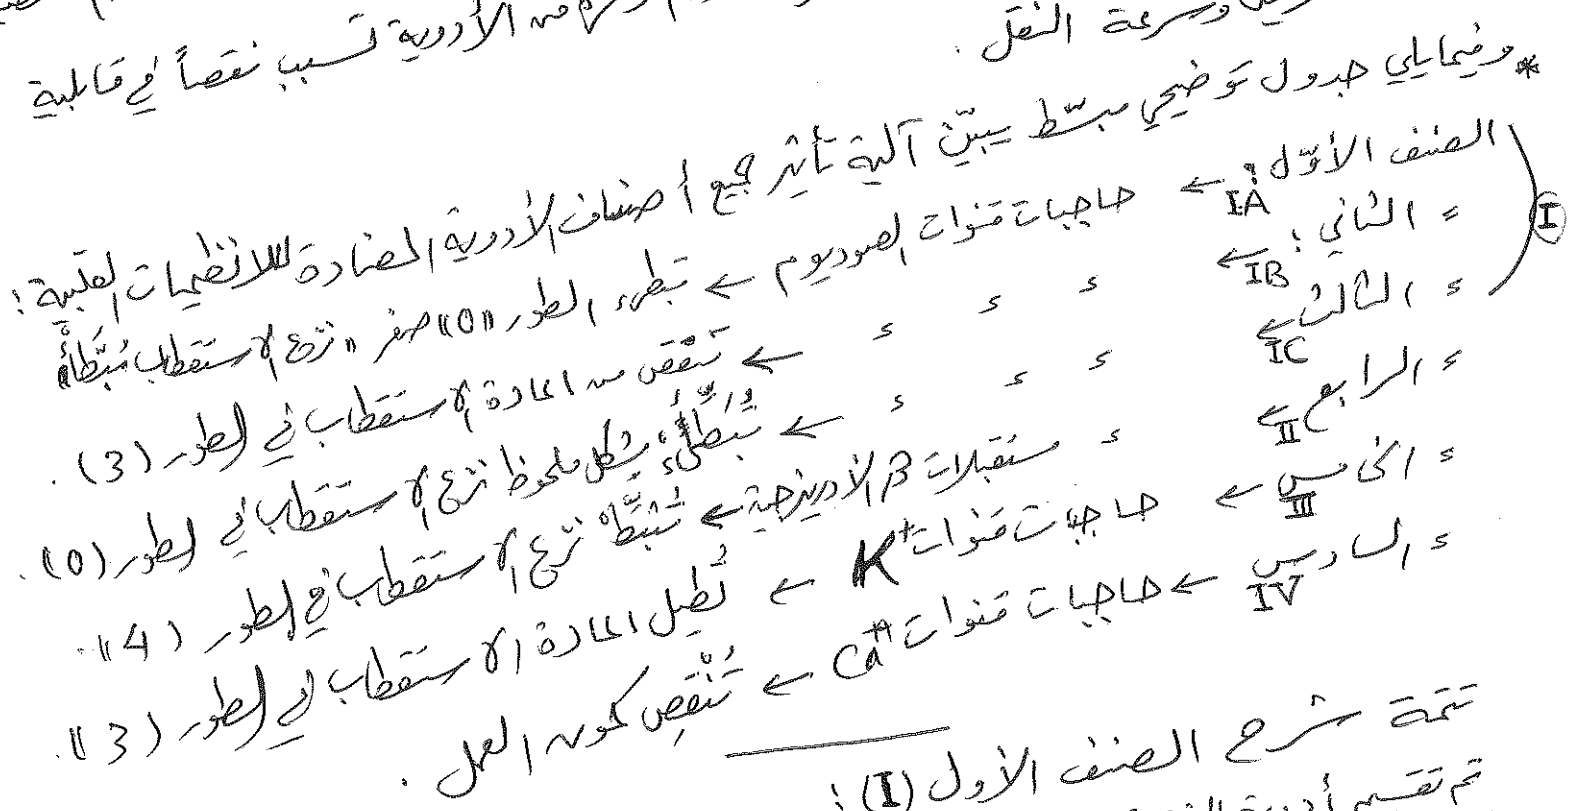 من الأدوية تسبب نقصاً في قابلية
وسرعة النقل .
* وفيما يلي جدول توضيحي مبسّط يبيّن آلية تأثير جميع أصناف الأدوية المضادة للانظميات القلبية :
I
الصنف الأوّل : IA ← حاجبات قنوات الصوديوم ← تبطىء الطور "0" صفر " نزع الاستقطاب مُبَطَّأً"
= الثاني : IB ← = = = ← تَنْقُص من اعادة الاستقطاب في الطور (3) .
= الثالث IC ← = = = ← تُبَطِّىُٔ بشكل ملحوظ نزع الاستقطاب في الطور (0) .
= الرابع II ← = مستقبلات β الأدرينرجية ← تُثَبِّطْ نزع الاستقطاب في الطور (4" .
= الخامس III ← حاجبات قنوات K+ ← تُطيل اعادة الاستقطاب في الطور (3" .
= السادس IV ← حاجبات قنوات Ca++ ← تُنْقِص كمون العمل .
تتمة شرح الصنف الأول (I) :
تم تقسيم أدوية